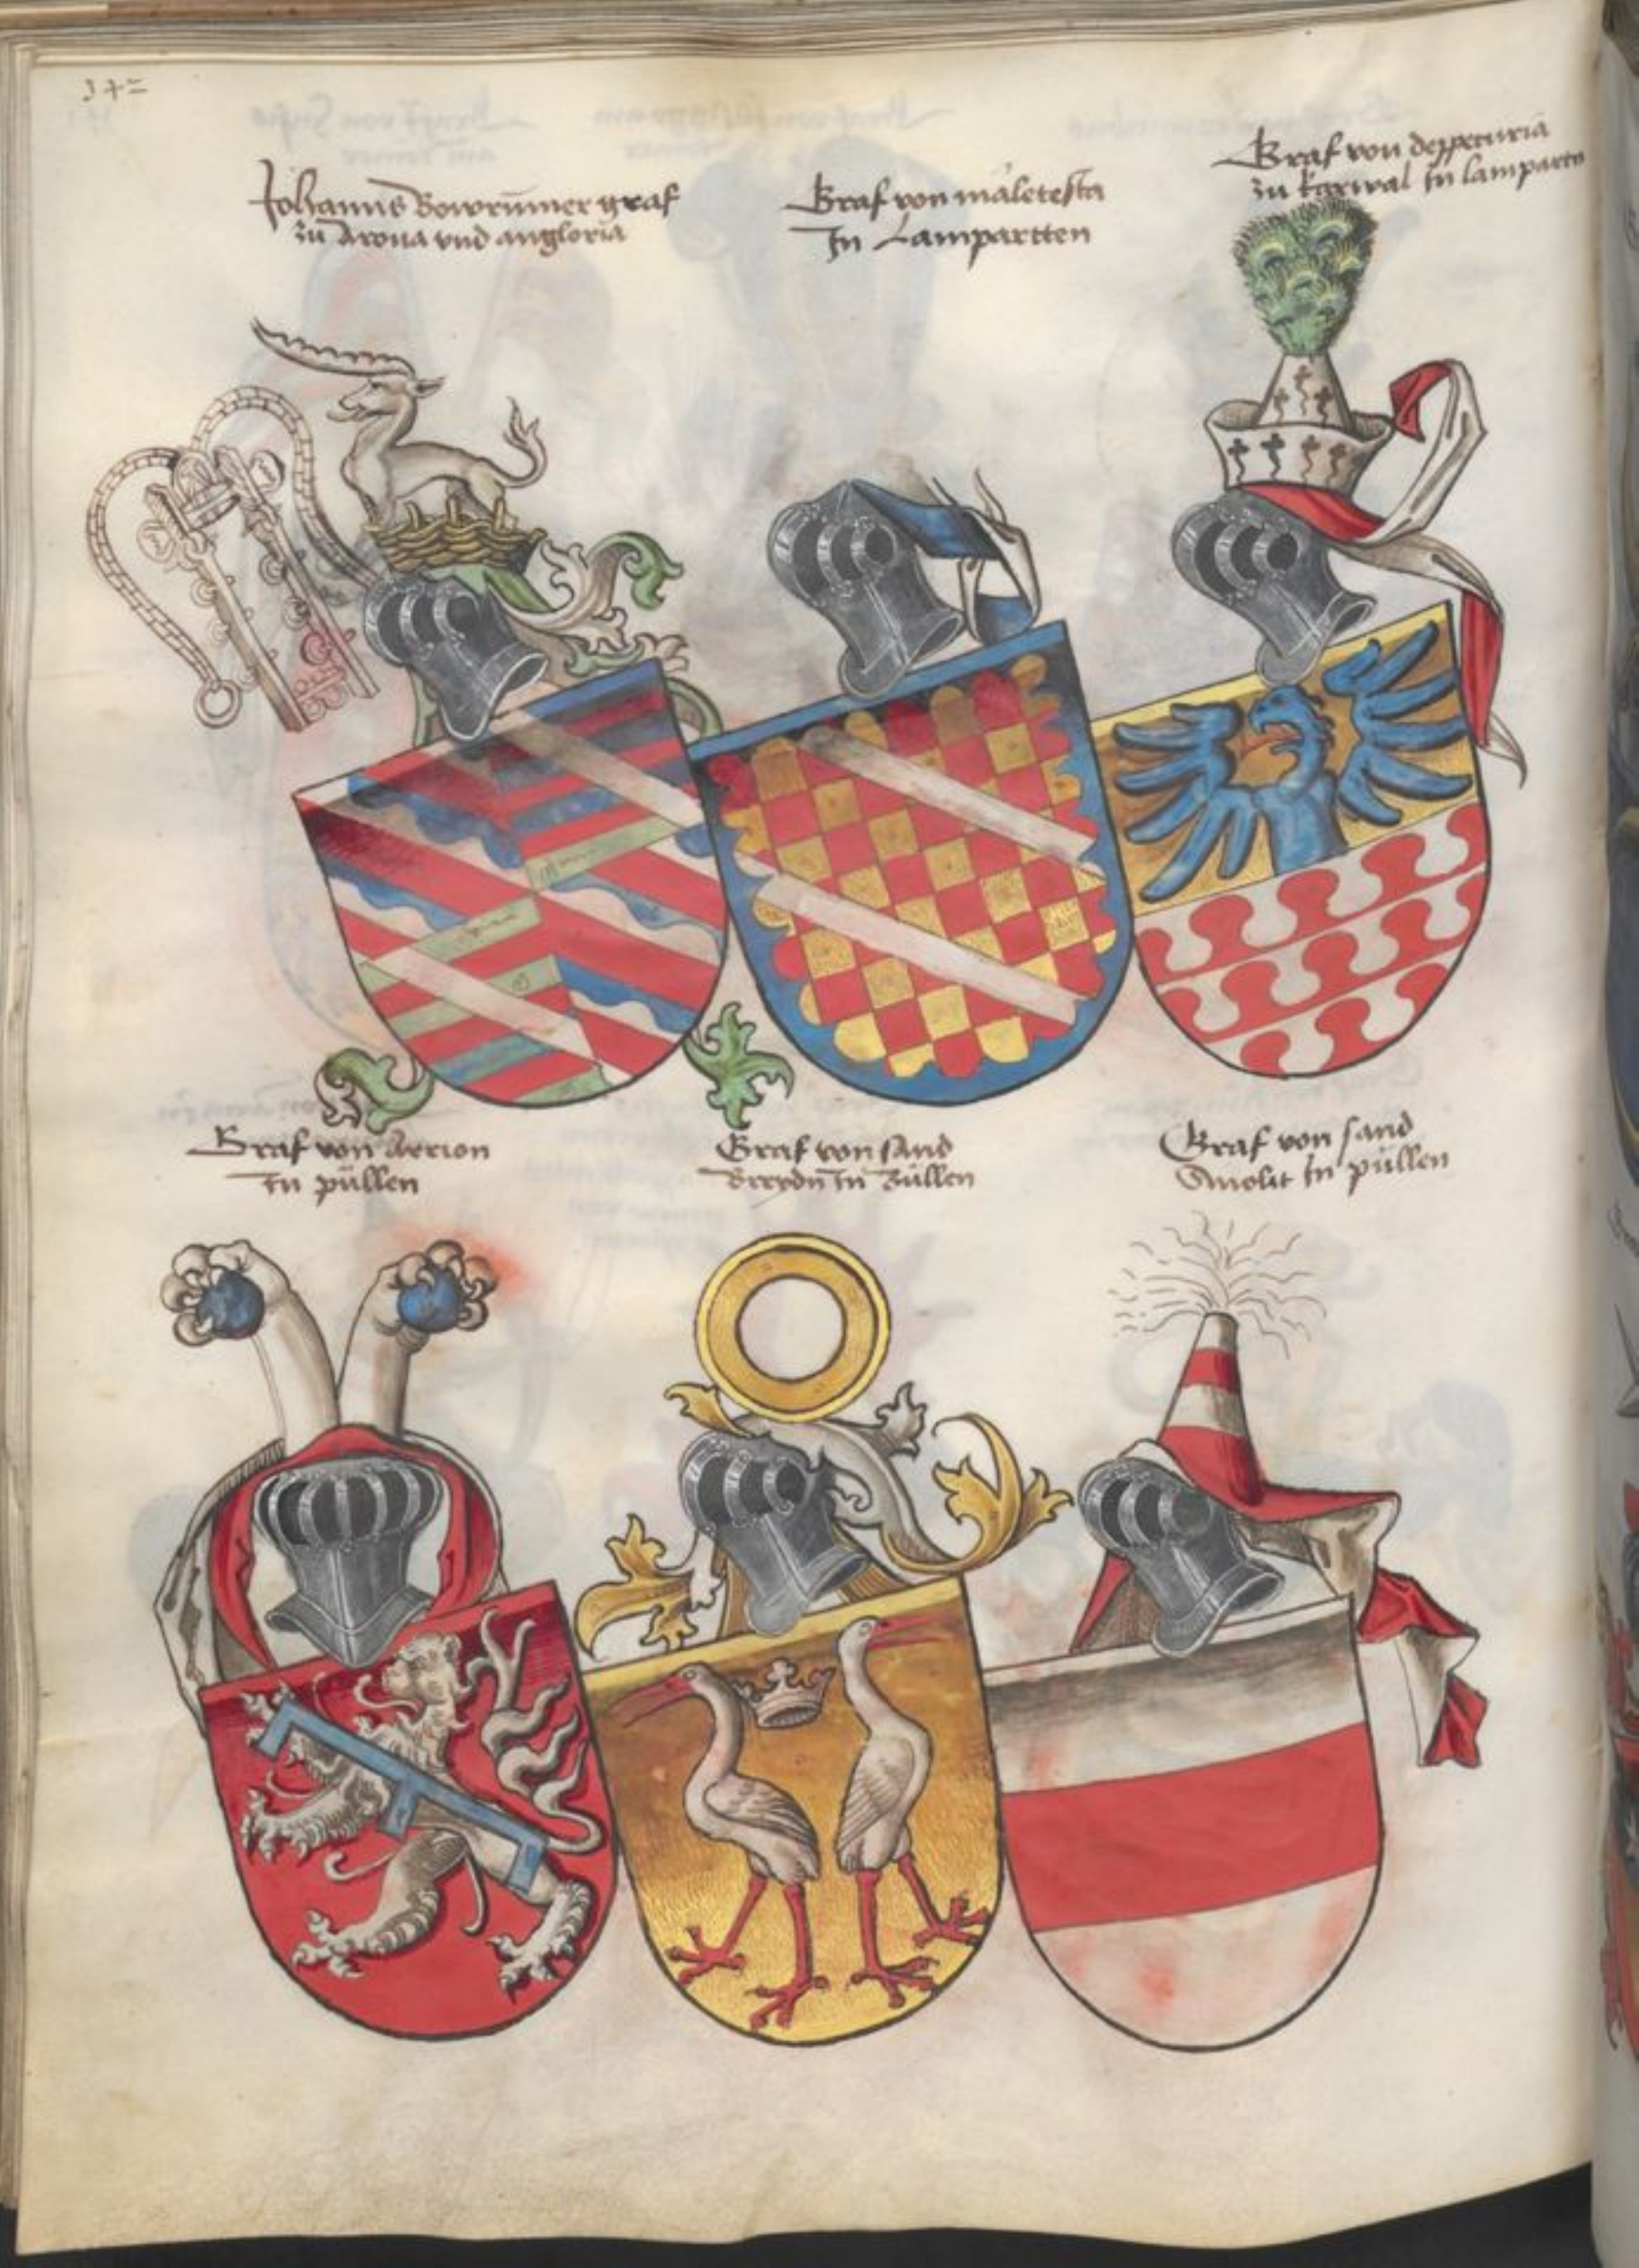 142
Johanns Bowrumer graf
zu Arona vnd angloria
Graf von maletesta
In Lampartten
Graf von
zu karwal In lamparten
Graf von Aerion
In püllen
Graf von sand
In Züllen
Graf von sand
In püllen